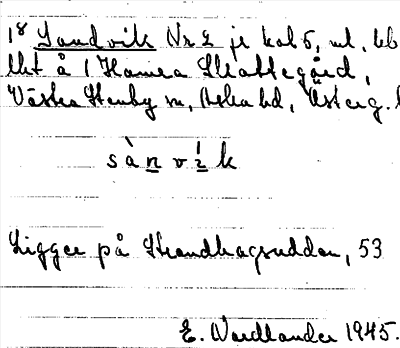 1⁸ Sandvik Nr 2 je kal 6, ut, bb
lht å 1 Hamra Skattegård,
Västra Stenby sn, Aska hd, Österg. l
sànv2́k
Ligger på Strandhagsuddan, 53
E. Nordlander 1945.